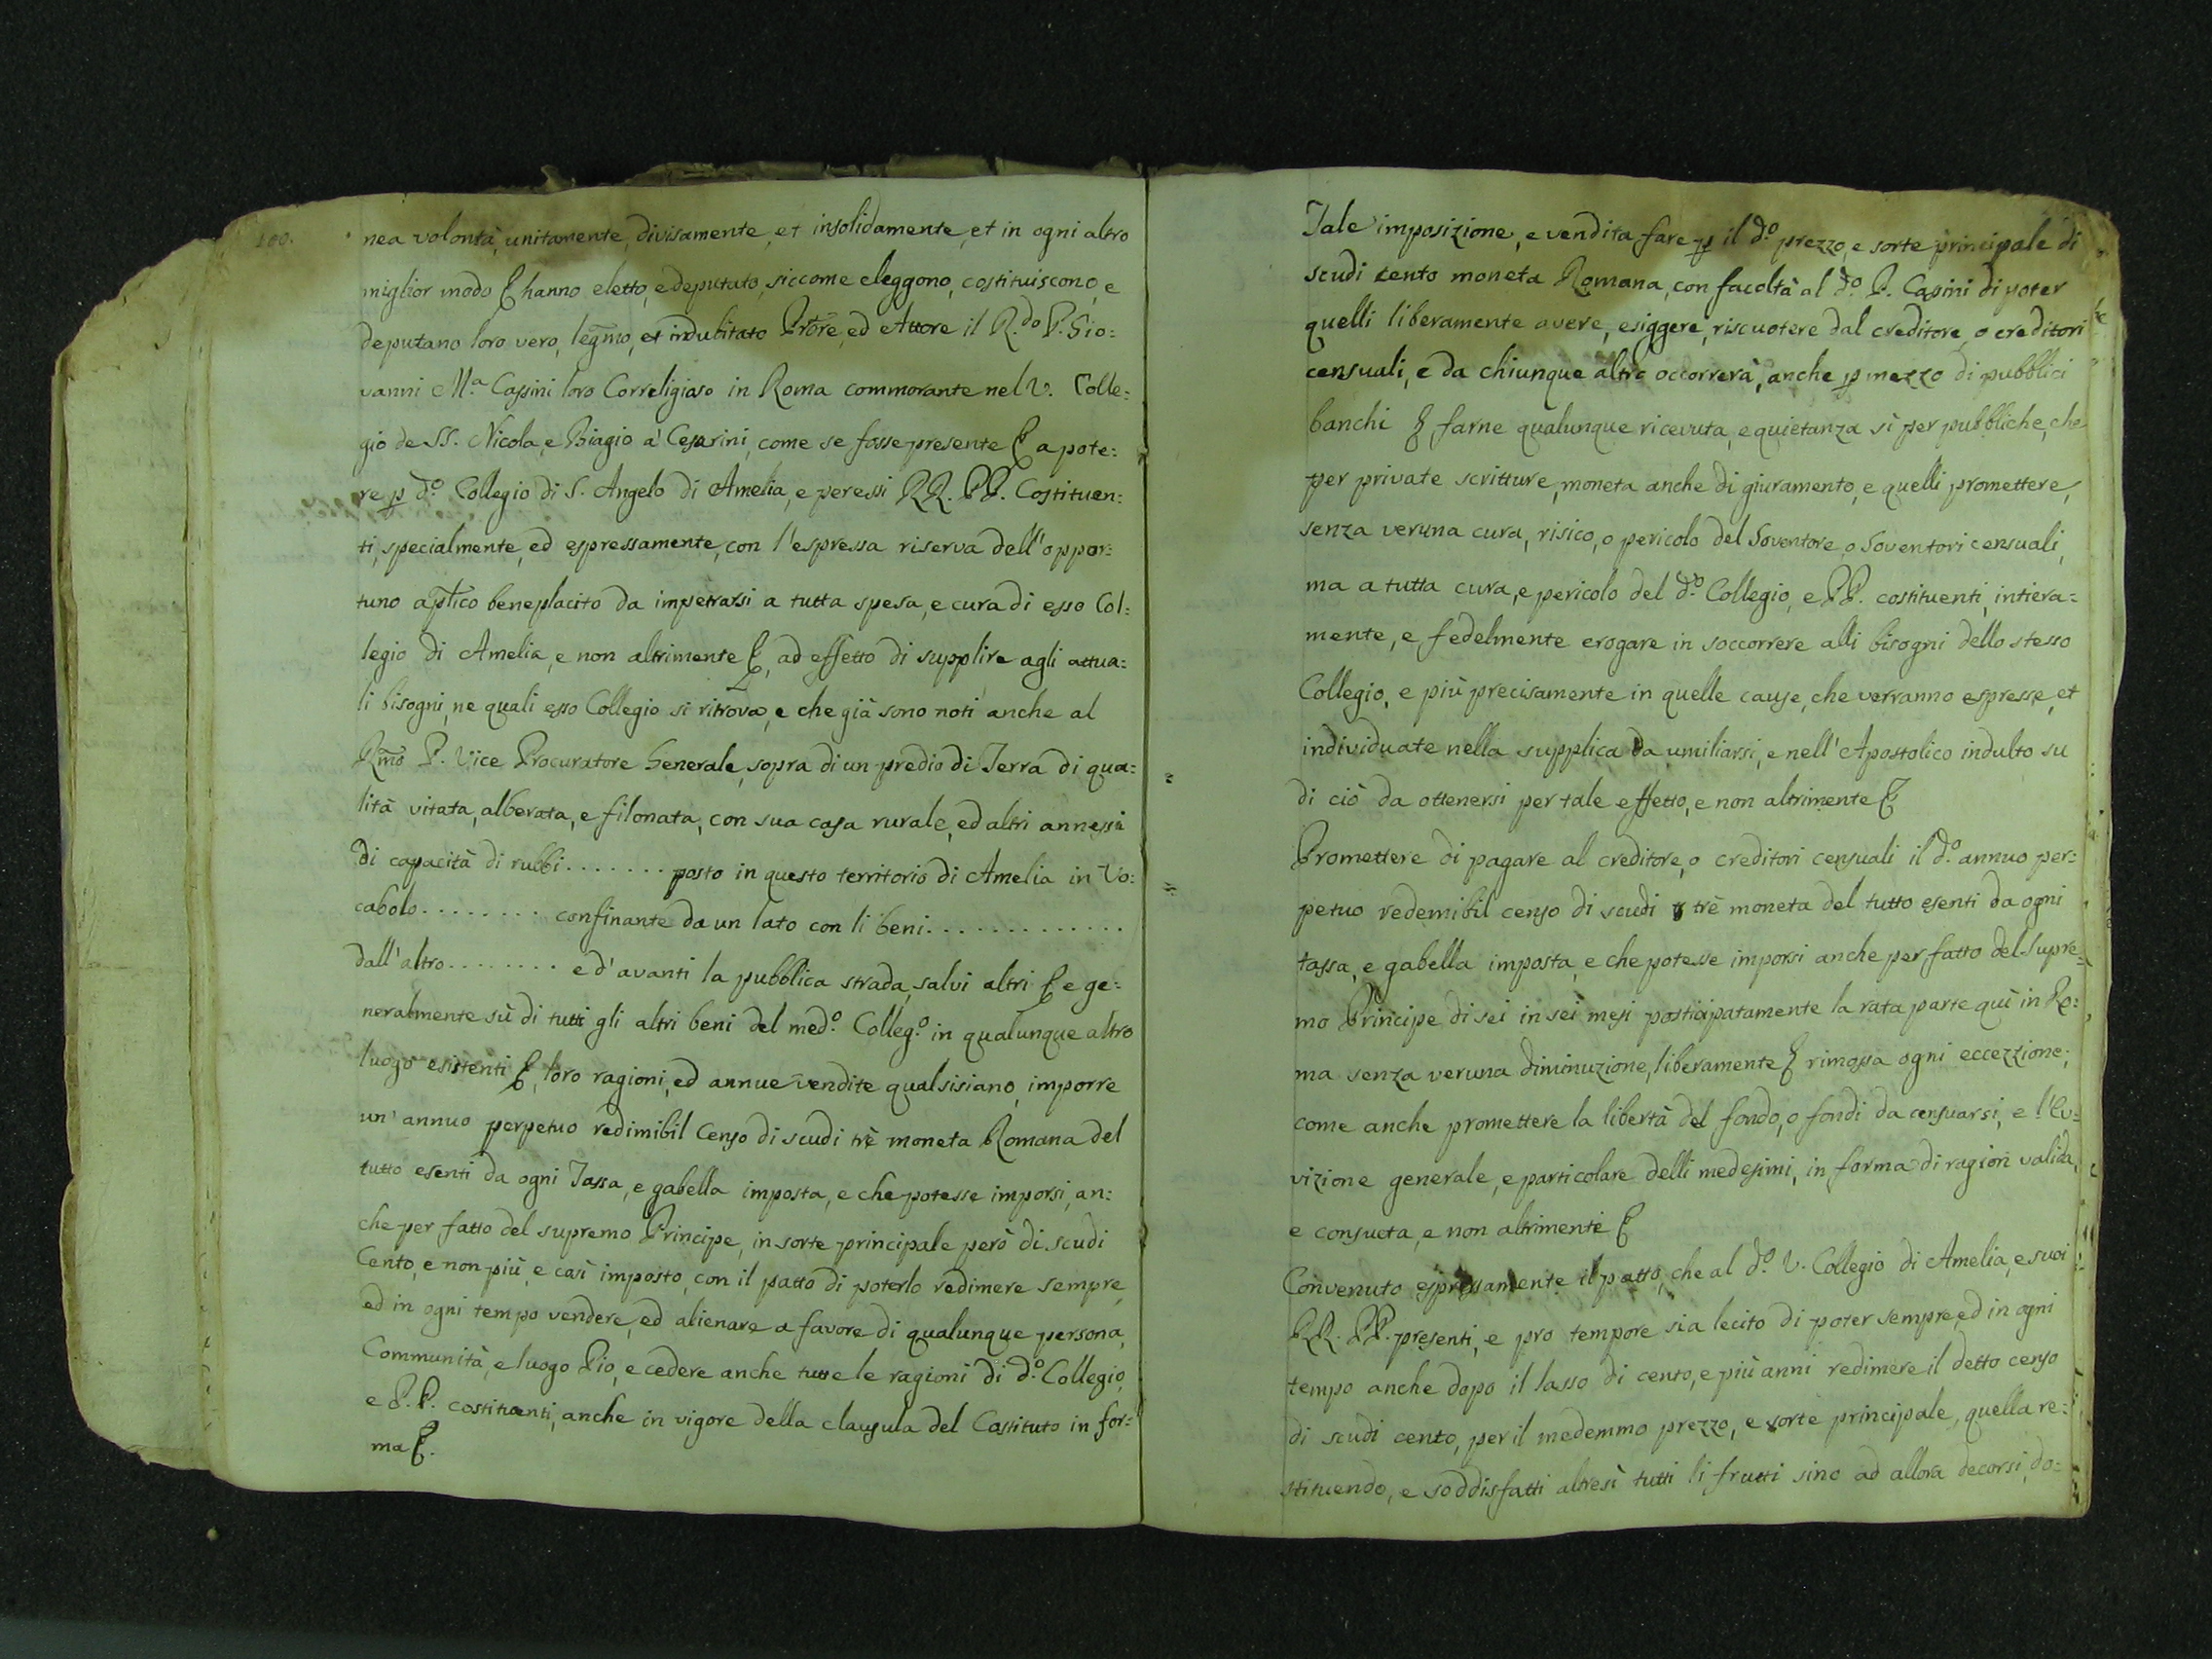 100.
nea volontà, unitamente, divisamente, et insolidamente, et in ogni altro
miglior modo & hanno eletto, e deputato, siccome eleggono, costituiscono, e
deputano loro vero, legmo, et indubitato Prore, ed Attore il R.do P. Gio:
vanni M.a Cassini loro Correligioso in Roma commorante nel V. Colle:
gio de SS. Nicola, e Biagio a' Cesarini, come se fosse presente & a pote:
re p d.o Collegio di S. Angelo di Amelia, e per essi RR. PP. Costituen:
ti, specialmente, ed espressamente, con l'espressa riserva dell'oppor:
tuno aplico beneplacito da impetrarsi a tutta spesa, e cura di esso Col:
legio di Amelia, e non altrimente &, ad effetto di supplire agli attua:
li bisogni, ne quali esso Collegio si ritrova, e che già sono noti anche al
Rmo P. Vice Procuratore Generale, sopra di un predio di Terra di qua:
lità vitata, alberata, e filonata, con sua casa rurale, ed altri annessi
di capacità di rubbi . . . . . . . posto in questo territorio di Amelia in Vo:
cabolo . . . . . . . . confinante da un lato con li beni . . . . . . . . . . . . .
dall'altro . . . . . . . . e d'avanti la pubblica strada, salvi altri & e ge:
neralmente sù di tutti gli altri beni del med.o Colleg.o in qualunque altro
luogo esistenti &, loro ragioni, ed annue vendite qualsisiano, imporre
un' annuo perpetuo redimibil Censo di scudi trè moneta Romana del
tutto esenti da ogni Tassa, e gabella imposta, e che potesse imporsi, an:
che per fatto del supremo Principe, in sorte principale però di scudi
Cento, e non più, e così imposto, con il patto di poterlo redimere sempre,
ed in ogni tempo vendere, ed alienare a favore di qualunque persona,
Communità, e luogo Pio, e cedere anche tutte le ragioni di d.o Collegio,
e P.P. costituenti, anche in vigore della clausula del Costituto in for:
ma &.
Tale imposizione, e vendita fare p il d.o prezzo, e sorte principale di
scudi cento moneta Romana, con facoltà al d.o P. Casini di poter
quelli liberamente avere, esiggere, riscuotere dal creditore, o creditori
censuali, e da chiunque altro occorrerà, anche p mezzo di pubblici
banchi & farne qualunque ricevuta, e quietanza sì per pubbliche, che
per private scritture, moneta anche di giuramento, e quelli promettere,
senza veruna cura, risico, o pericolo del Soventore, o Soventori censuali,
ma a tutta cura, e pericolo del d.o Collegio, e PP. costituenti, intiera=
mente, e fedelmente erogare in soccorrere alli bisogni dello stesso
Collegio, e più precisamente in quelle cause, che verranno espresse, et
individuate nella supplica da umiliarsi, e nell'Apostolico indulto su
di ciò da ottenersi per tale effetto, e non altrimente &
Promettere di pagare al creditore, o creditori censuali il d.o annuo per:
petuo redemibil censo di scudi trè moneta del tutto esenti da ogni
tassa, e gabella imposta, e che potesse imporsi anche per fatto del Supre:
mo Principe di sei in sei mesi posticipatamente la rata parte quì in Ro:
ma senza veruna diminuzione, liberamente & rimossa ogni eccezzione;
come anche promettere la libertà del fondo, o fondi da censuarsi, e l'Ev:
vizione generale, e particolare delli medesimi, in forma di ragion valida,
e consueta, e non altrimenti &
Convenuto espressamente il patto, che al d.o V. Collegio di Amelia, e suoi
RR. PP. presenti, e pro tempore sia lecito di poter sempre, ed in ogni
tempo anche dopo il lasso di cento, e più anni redimere il detto censo
di scudi cento, per il medemmo prezzo, e sorte principale, quella re:
stituendo, e soddisfatti altresì tutti li frutti sino ad allora decorsi, do: